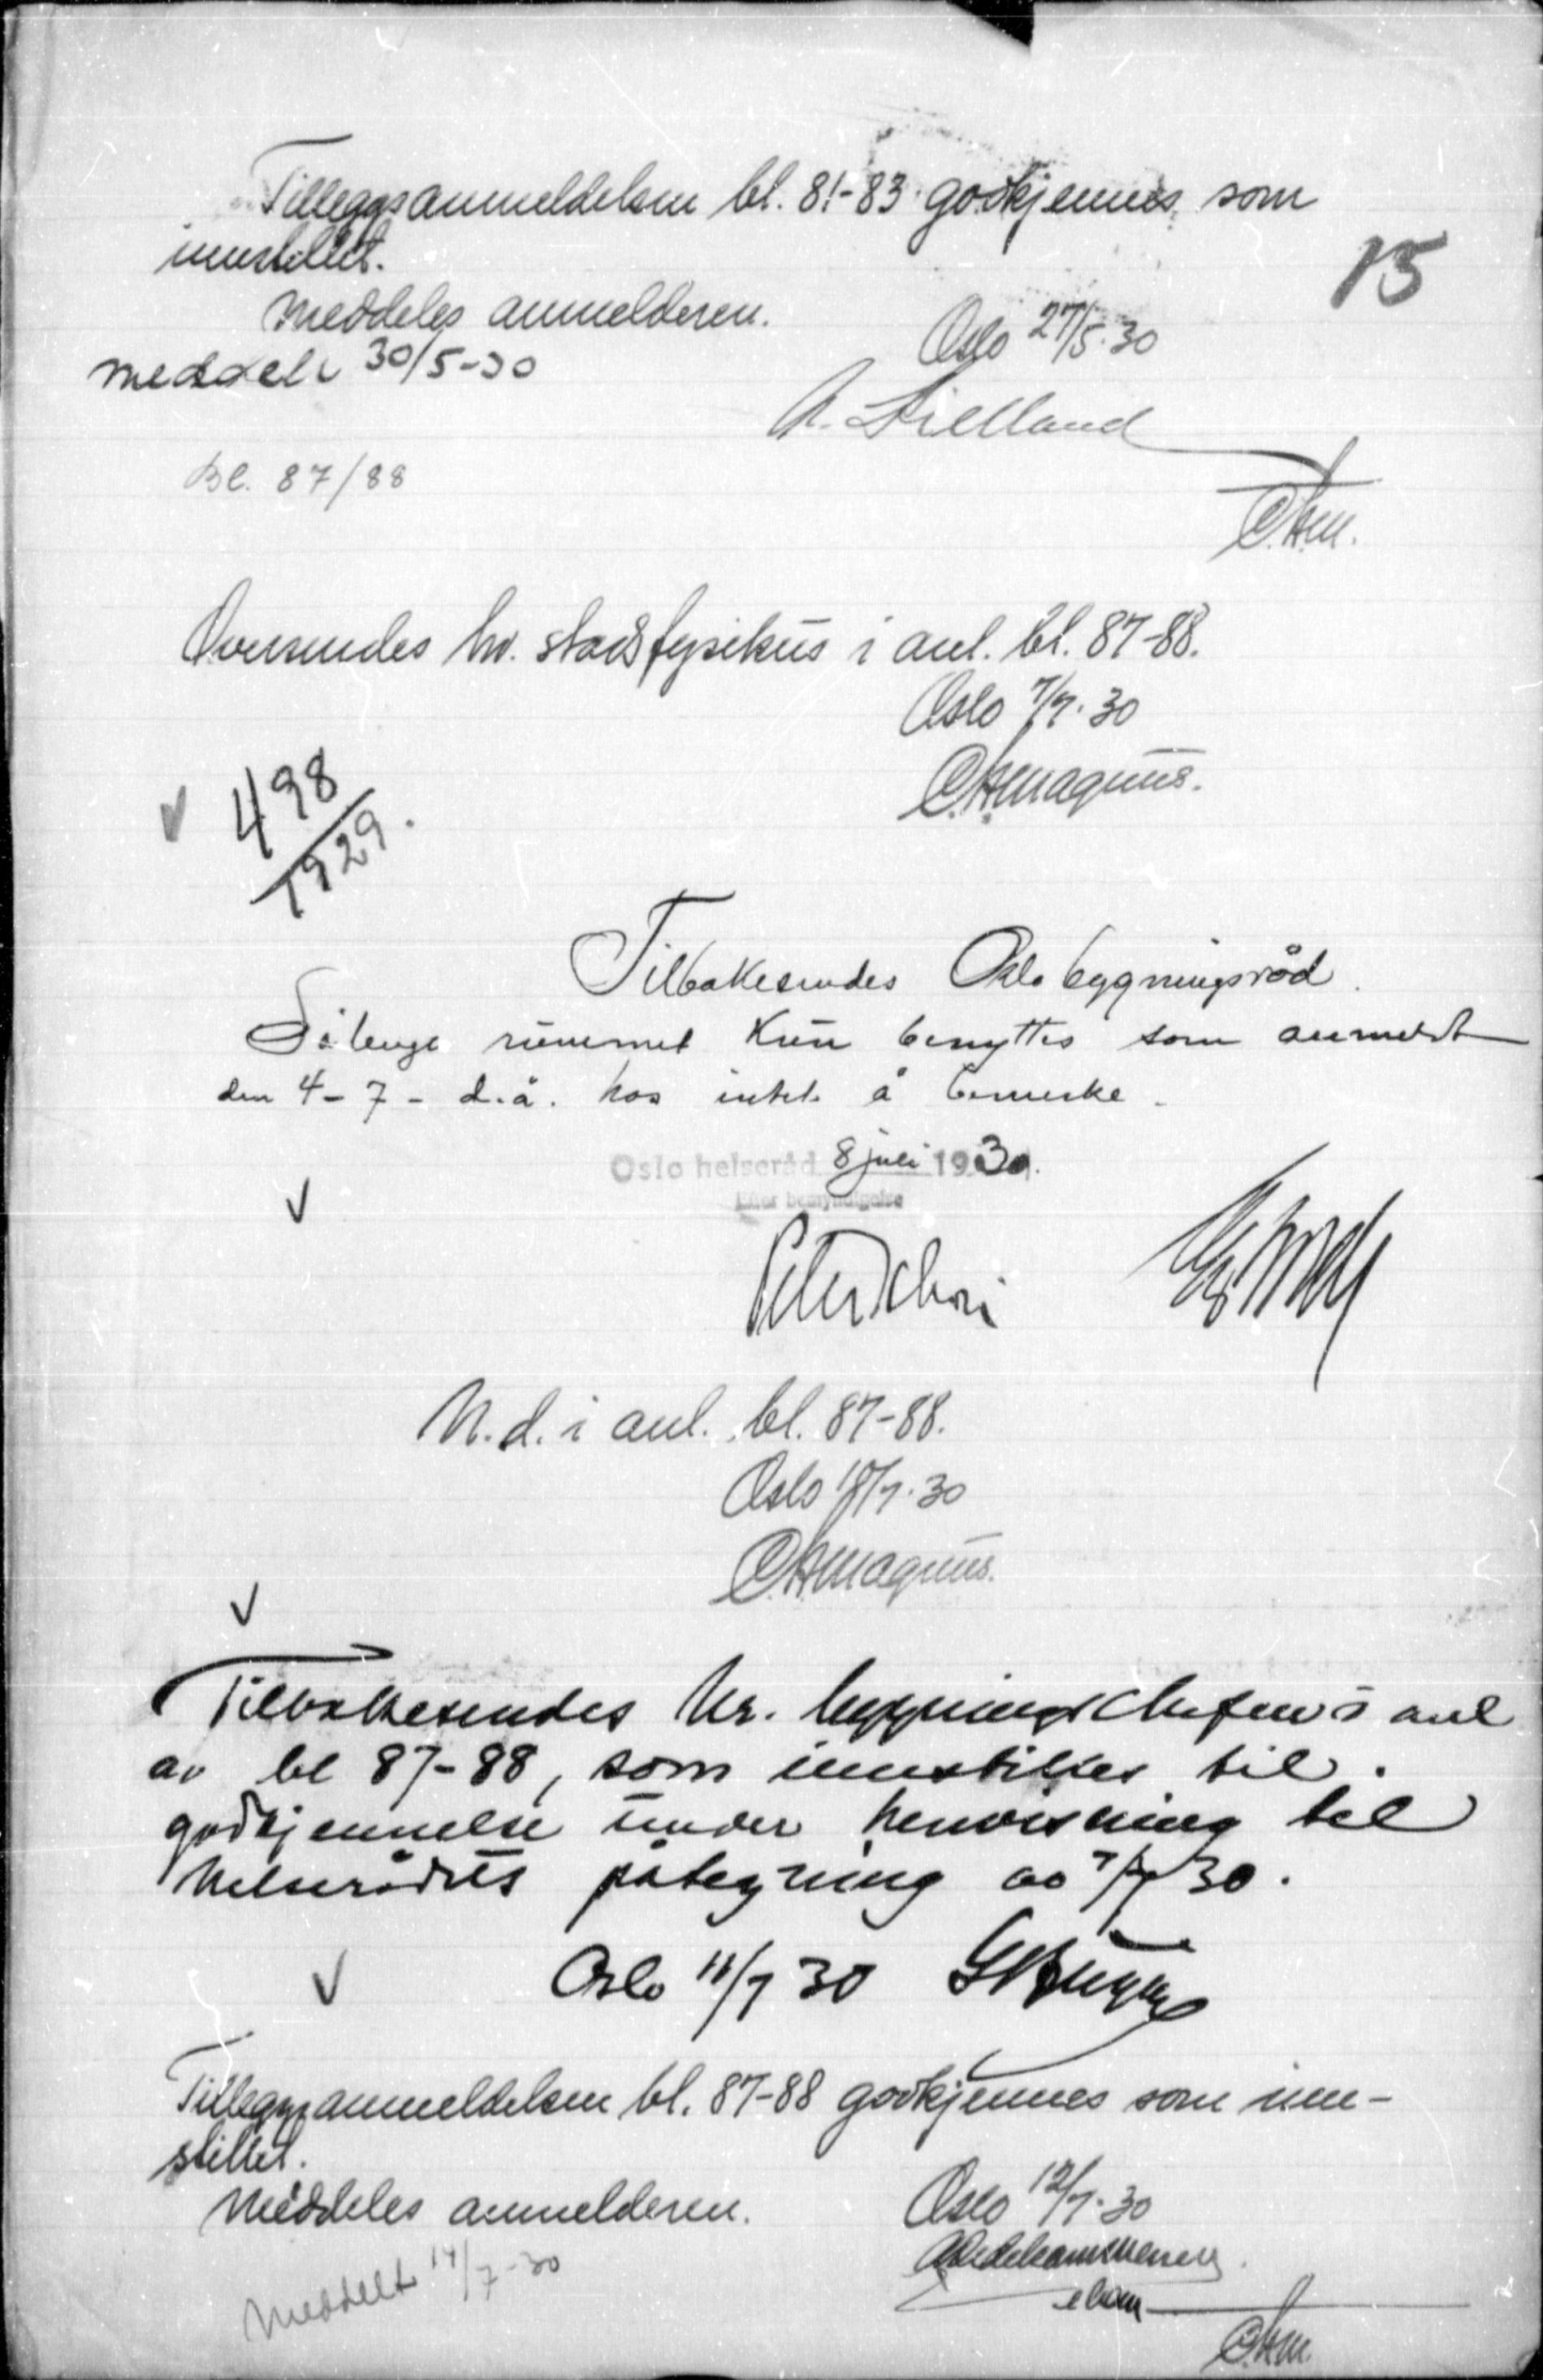 Tilleggsanmeldelsen bl. 81-83 godkjennes som
innstillet.
15
Meddeles anmelderen.
Oslo 27/5.30
meddelt 30/5-30
Bl. 87/88
C.H.M.
Oversendes hr. stadsfysikus i anl. bl. 87-88.
Oslo 7/7.30
C.H.Magnus.
498
1929.
Tilbakesendes Oslo bygningsråd.
Sålenge rummet kun benyttes som anmeldt
den 4-7-d.å. has intet å bemerke.
Oslo helseråd 8 juli 1930.
Efter bemyndigelse
N.d. i anl. bl. 87-88.
Oslo 10/7.30
C.H.Magnus.
Tilbakesendes hr. bygningschefen i anl
av bl 87-88, som innstilles til
godkjennelse under henvisning til
helserådets påtegning av 7/7 30.
Oslo 11/7 30
Tilleggsanmeldelsen bl. 87-88 godkjennes som inn-
stillet.
Meddeles anmelderen.
Oslo 12/7.30
Meddelt 14/7-30
C.H.M.